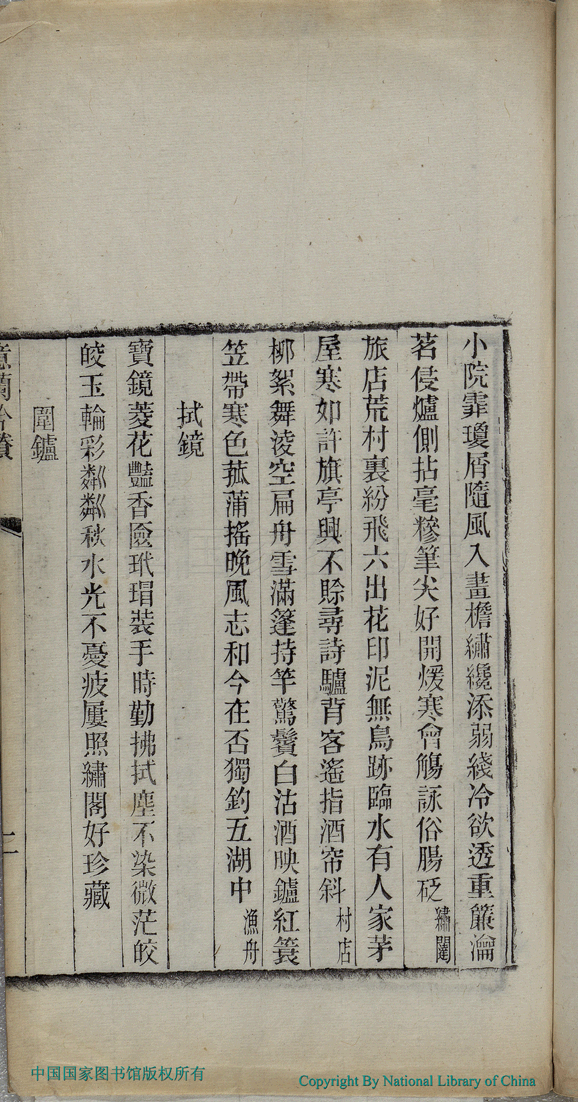 小院霏瓊屑隨風入畫檐繡纔添弱綫冷欲透重簾瀹
茗侵爐側拈毫糝筆尖好開煖寒會觴詠俗腸砭繡闥
旅店荒村裏紛飛六出花印泥無鳥跡臨水有人家茅
屋寒如許旗亭興不賒尋詩驢背客遙指酒帘斜村店
柳絮舞淩空扁舟雪滿篷持竿驚鬢白沽酒映鑪紅簑
笠帶寒色菰蒲搖晚風志和今在否獨釣五湖中漁舟
拭鏡
寶鏡菱花豔香奩玳瑁裝手時勤拂拭塵不染微茫皎
皎玉輪彩粼粼秋水光不憂疲屢照繡閣好珍藏
圍鑪
中国国家图书馆版权所有
Copyright By National Library of China